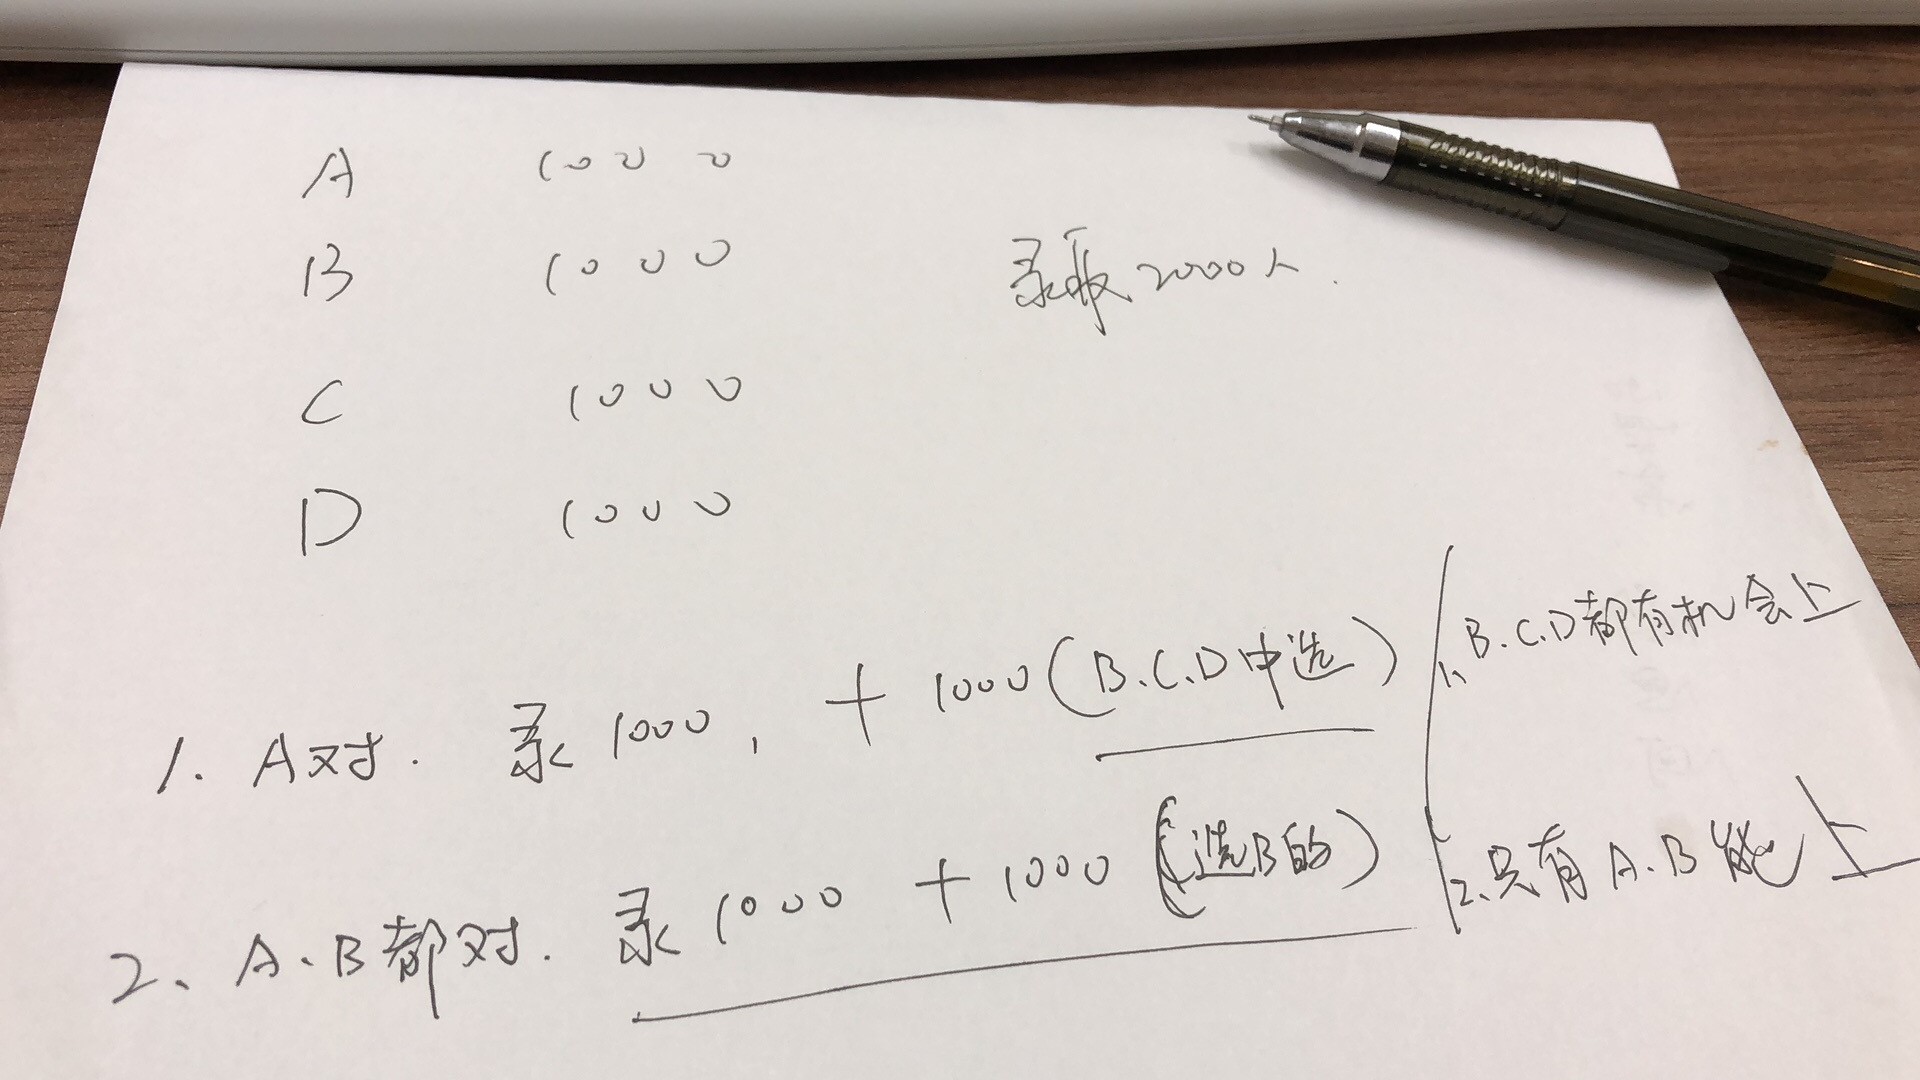 A 1000
B 1000
录取2000人.
C 1000
D 1000
1. A对. 录1000, + 1000(B.C.D中选)
2、A.B都对. 录1000 + 1000(选B的)
1、B.C.D都有机会上
2、只有A.B能上